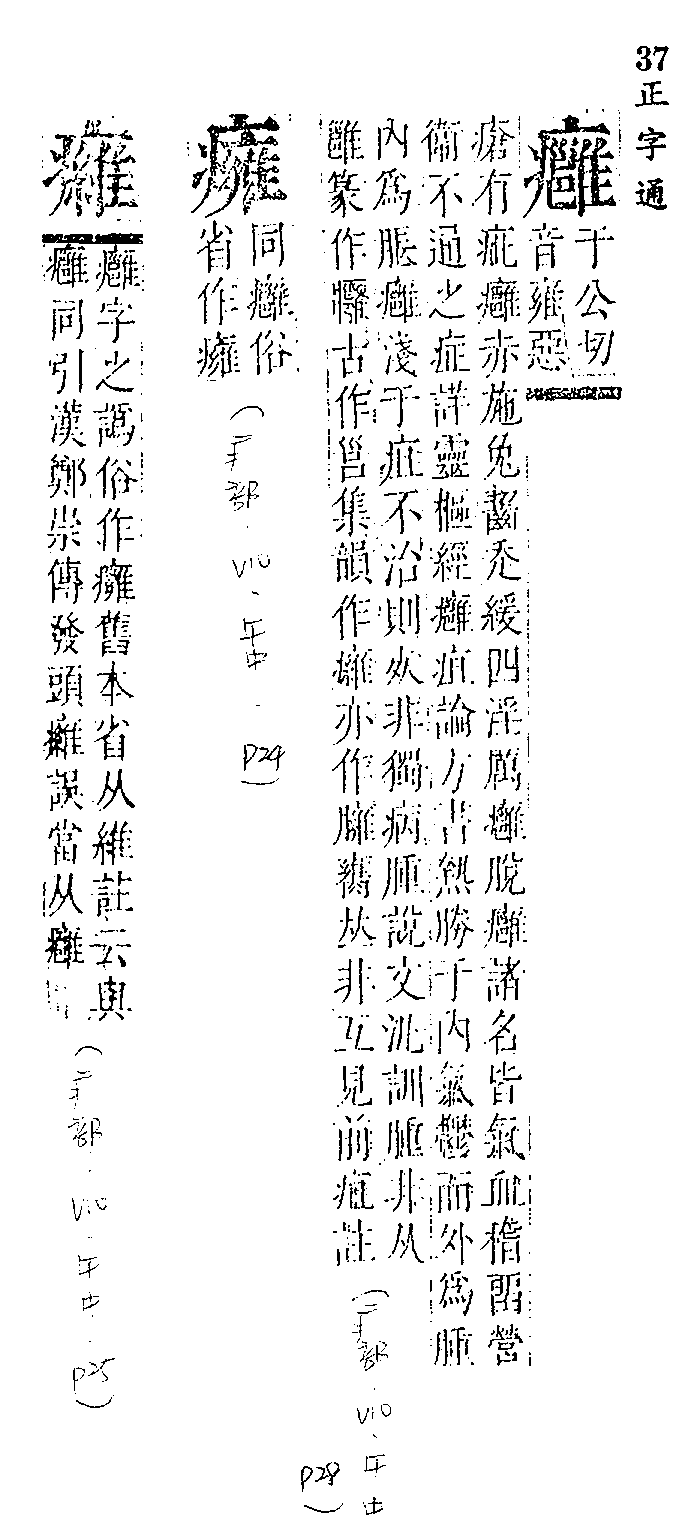 37正字通
癰
于公切
音雍惡
瘡有疵癰赤施兔齧禿緩四淫厲癰脫癰諸名皆氣血稽畱營
衞不通之症詳靈樞經癰疽論方書熱勝于內氣鬱而外爲腫
內爲脹癰淺于疽不治則
非獨病腫說文汎訓腫非从
雝篆作
古作邕集韻作
亦作臃
𠀤非互見前疽註
(疒部.V10.午中.P28)
癕
同癰俗
省作癕
(疒部.V10.午中.P24)
癰字之譌俗作癕舊本省从維註云與
癰同引漢鄭崇傳發頭
誤當从癰
(疒部.V10.午中.P25)